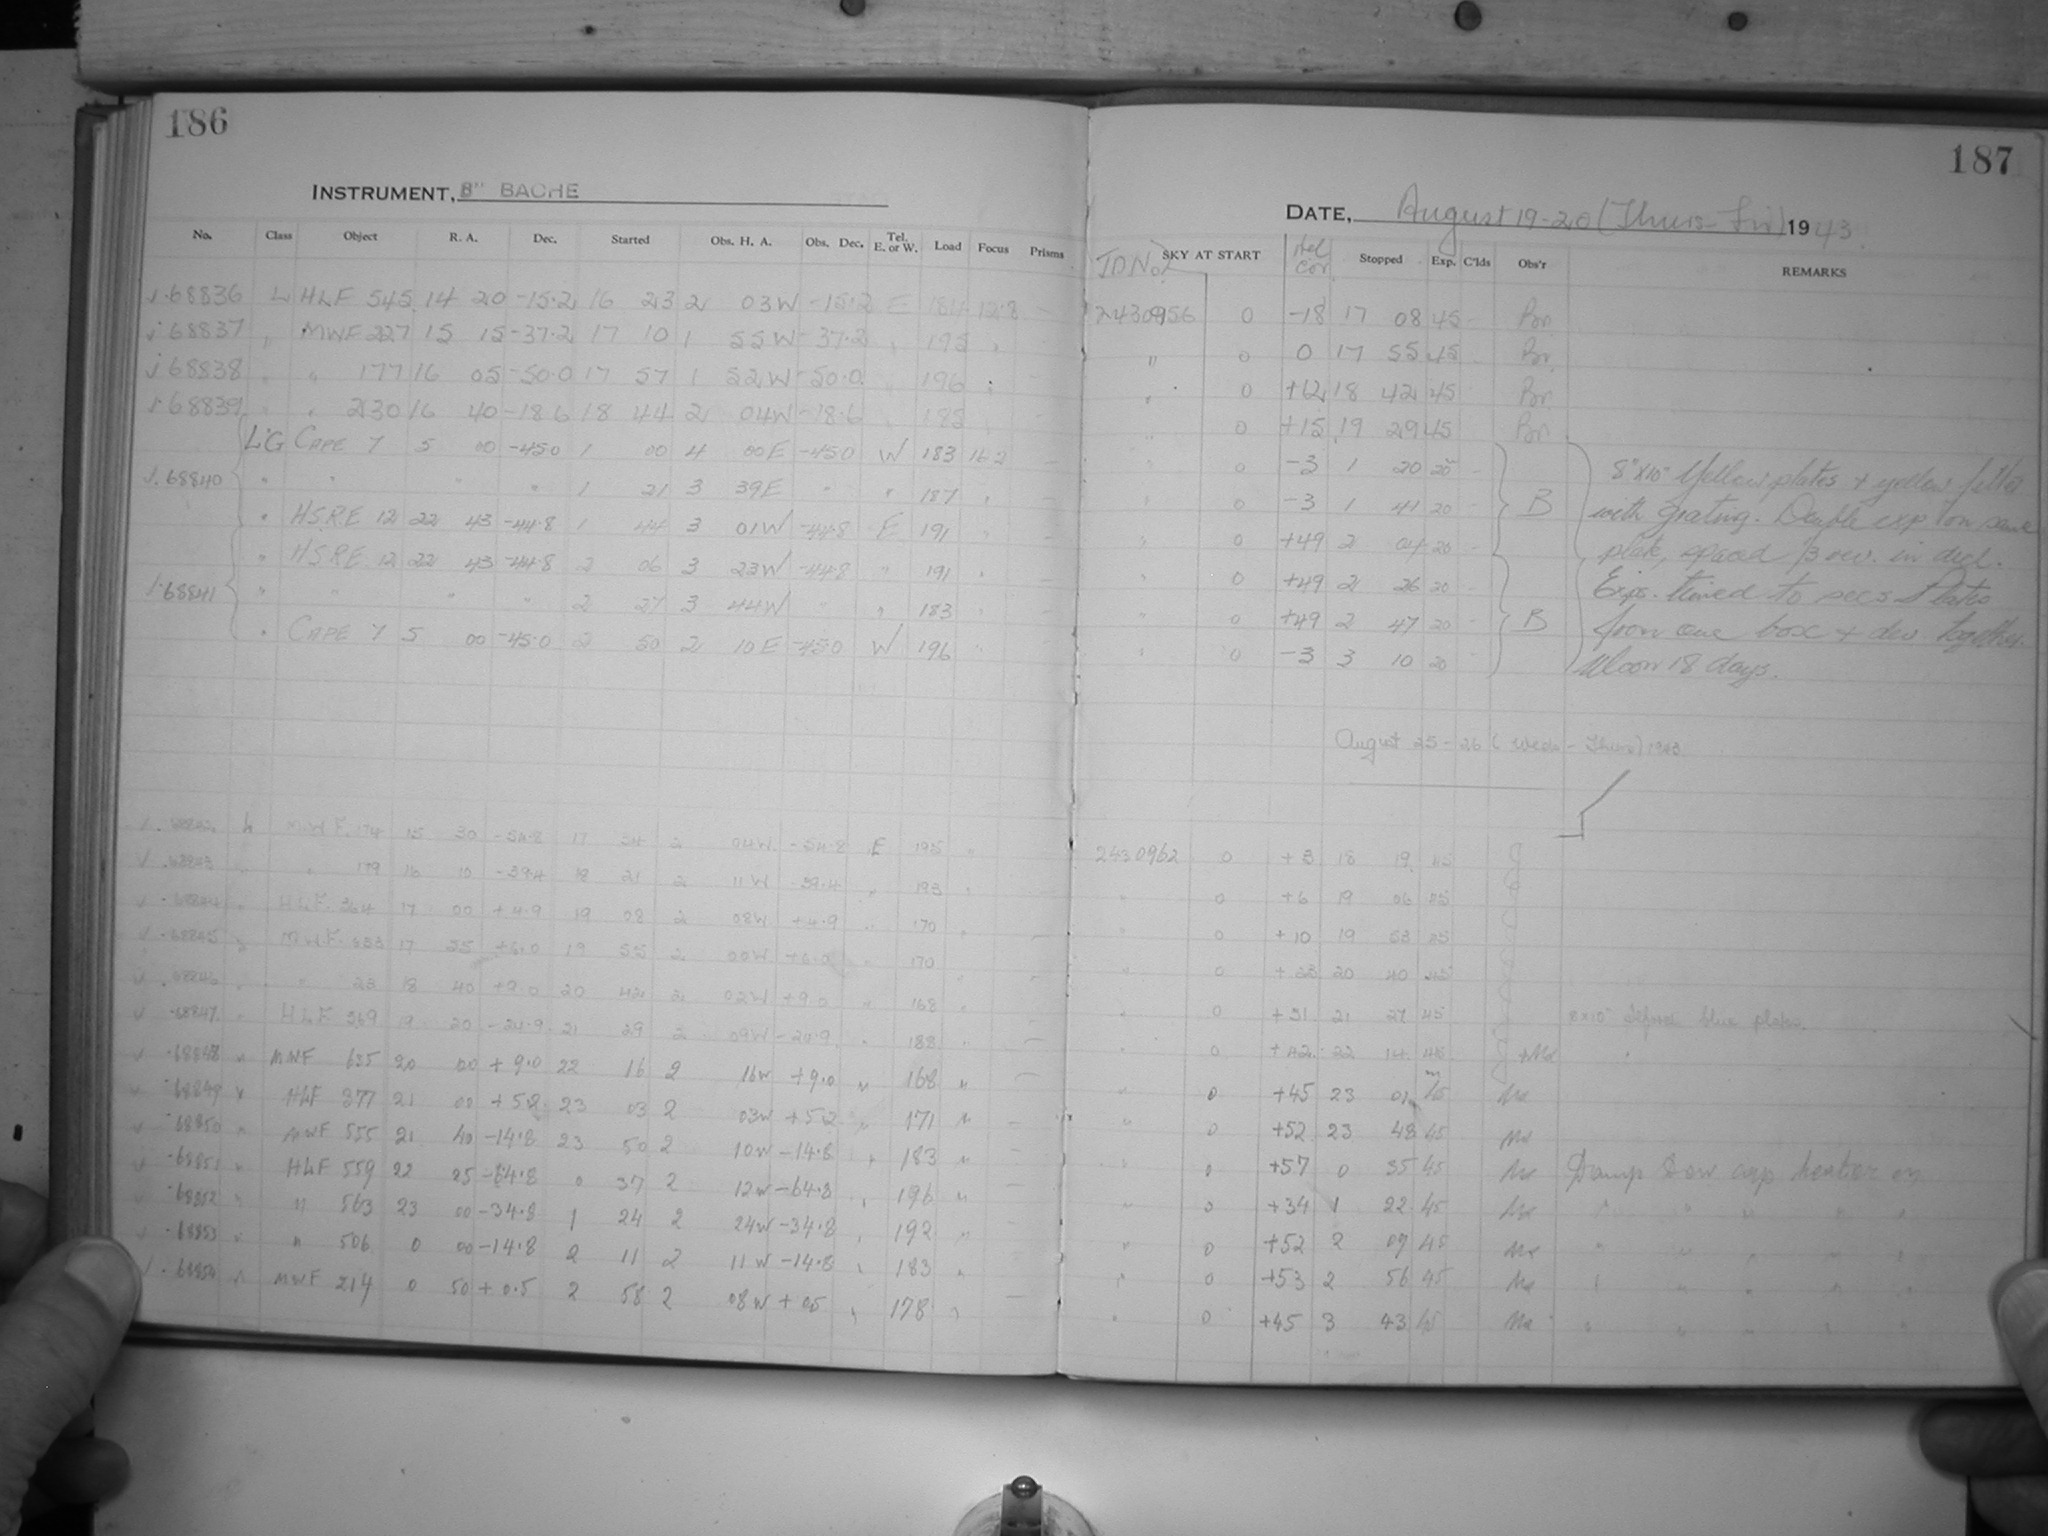 186
INSTRUMENT, 8" BACHE
No. Class Object R. A. Dec. Started Obs. H. A. Obs. Dec. Tel. E. or W. Load Focus Prisms
68836 L HLF 545 14 20 -15.2 16 23 2 03W -15.2 E 184 12.8
68837 " MWF 227 15 15 -37.2 17 10 1 55W -37.2 " 195 "
68838 " " 177 16 05 -50.0 17 57 1 52W -50.0 " 196 "
68839 " " 230 16 40 -18.6 18 44 2 04W -18.6 " 185
LG CAPE Y 5 00 -45.0 1 00 4 00E -45.0 W 183 16.2
68840 " " " " 1 21 3 39E " " 187 "
" HSRE 12 22 43 -44.8 1 44 3 01W -44.8 E 191 "
" HSRE 12 22 43 -44.8 2 06 3 23W -44.8 " 191 "
68841 " " " " 2 27 3 44W " " 183 "
" CAPE Y 5 00 -45.0 2 50 2 10E -45.0 W 196 "
68842 L MWF 174 15 30 -54.8 17 34 2 04W -54.8 E 195 "
68843 " " 179 16 10 -39.4 18 21 2 11W -39.4 " 193 "
68844 " HLF 364 17 00 +4.9 19 08 2 08W +4.9 " 170 "
68845 " MWF 17 25 +6.0 19 55 2 00W +6.0 " 170 "
68846 " " 23 18 40 +9.0 20 42 2 02W +9.0 " 168 "
68847 " HLF 369 19 20 -24.9 21 29 2 09W -24.9 " 188 "
68848 " MWF 635 20 00 +9.0 22 16 2 16W +9.0 " 168 "
68849 " HLF 377 21 00 +5.2 23 03 2 03W +5.2 " 171 "
68850 " MWF 555 21 40 -14.8 23 50 2 10W -14.8 " 183 "
68851 " HLF 559 22 25 -64.8 0 37 2 12W -64.8 " 196 "
68852 " " 563 23 00 -34.8 1 24 2 24W -34.8 " 192 "
68853 " " 506 0 00 -14.8 2 11 2 11W -14.8 " 183 "
68854 " MWF 214 0 50 +0.5 2 58 2 08W +0.5 " 178 "
187
DATE, August 19-20 (Thurs-Fri) 1943.
JD No. SKY AT START Tel Cor Stopped Exp. C'lds Obs'r REMARKS
2430956 0 -18 17 08 45 Br.
" 0 0 17 55 45 Br.
" 0 +12 18 42 45 Br.
" 0 +15 19 29 45 Br
" 0 -3 1 20 20 8"x10" Yellow plates + yellow filter
" 0 -3 1 41 20 B with grating. Double exp on same
" 0 +49 2 04 20 plate, spaced in decl.
" 0 +49 2 26 20 Exps. timed to secs Plates
" 0 +49 2 47 20 B from one box + dev together.
" 0 -3 3 10 20 Moon 18 days.
August 25-26 (Weds-Thurs) 1943
2430962 0 +3 18 19 45 J
" 0 +6 19 06 45
" 0 +10 19 53 45
" 0 20 40 45
" 0 +31 21 27 45 8x10" blue plates.
" 0 +42 22 14 45 J + Mx "
" 0 +45 23 01 45 Mx
" 0 +52 23 48 45 Mx
" 0 +57 0 35 45 Mx Damp Dew cap heater on
" 0 +34 1 22 45 Mx " " " " "
" 0 +52 2 09 45 Mx " " " " "
" 0 +53 2 56 45 Mx " " " " "
" 0 +45 3 43 45 Mx " " " " "